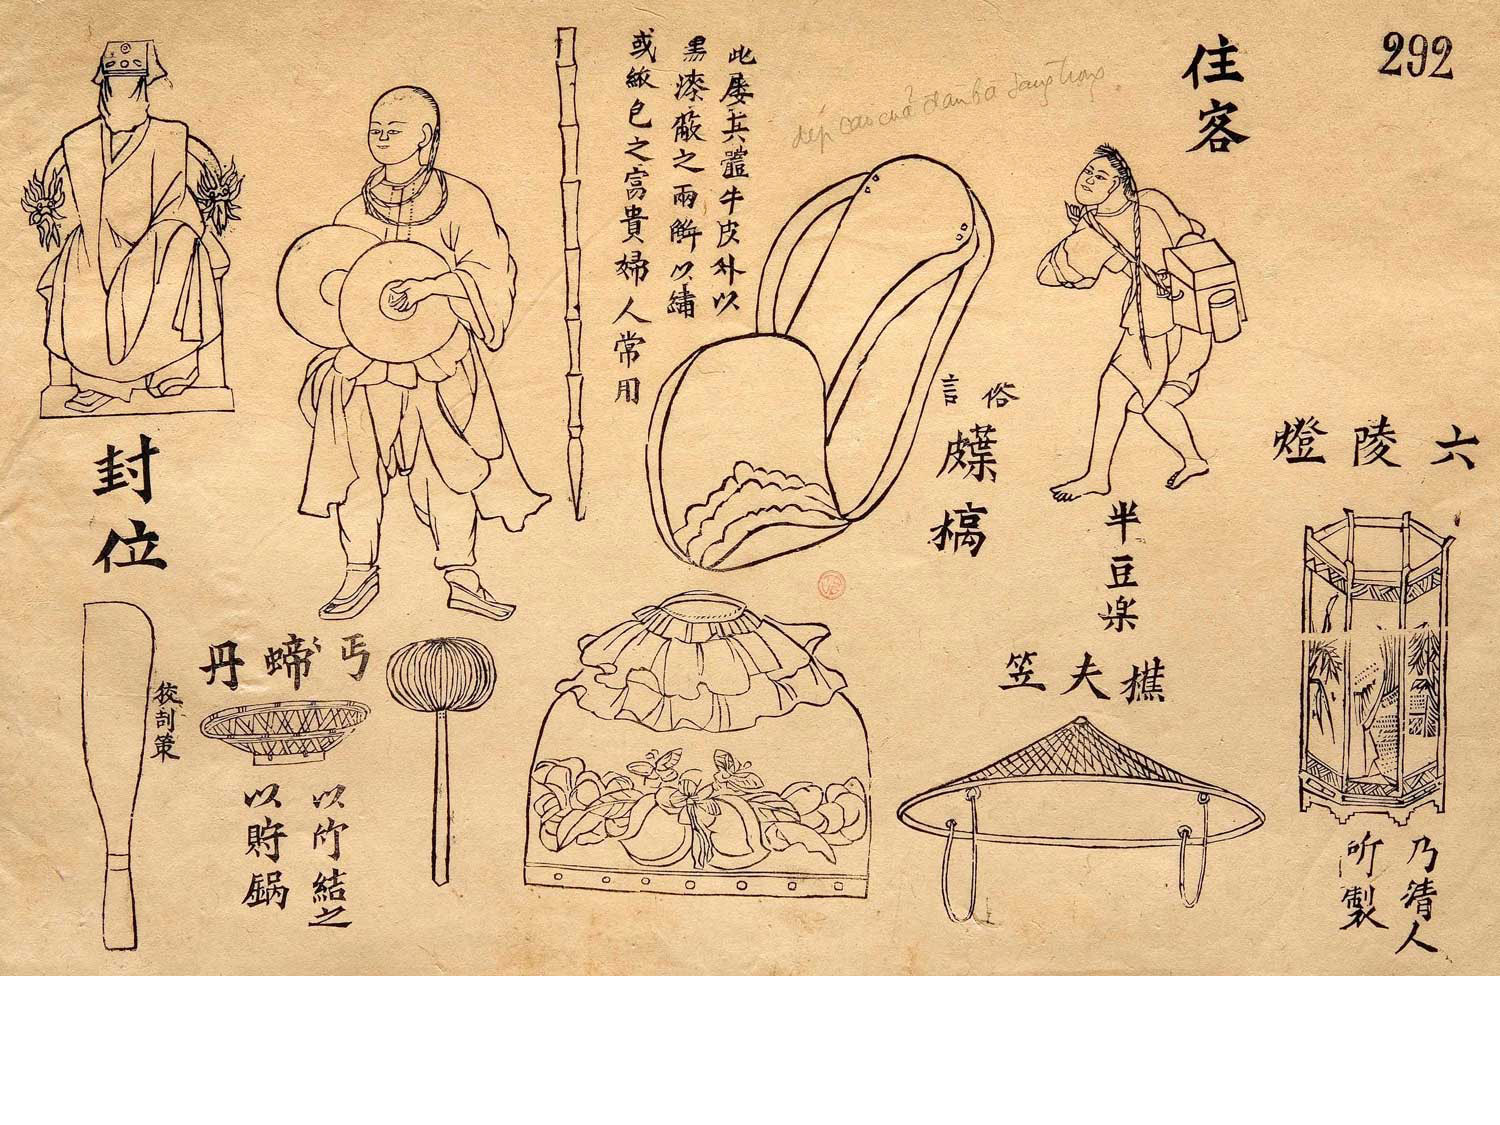 292
住客
此屡其體牛皮外以
黑漆䉤之兩觧以繡
或紙包之富貴婦人常用
dép cao của đàn bà sang trọng
俗言
𤿭槁
封位
半豆楽
六陵燈
乃清人
所製
樵夫笠
丐蹄丹
以竹結之
以貯鍋